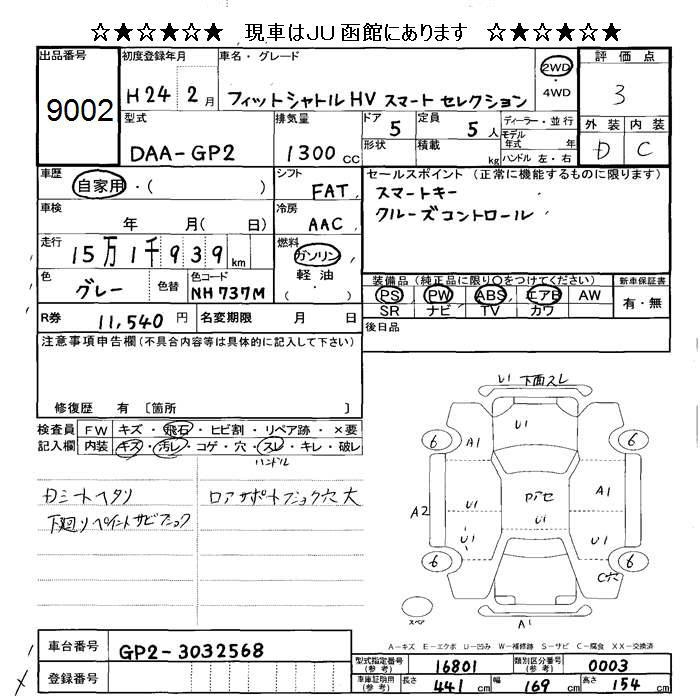 ☆★☆★☆★ 現車はJU函館にあります ☆★☆★☆★
出品番号 9002
初度登録年月 H24 2月
車名・グレード フィットシャトルHV スマートセレクション
2WD ・ 4WD
評価点 3
外装 内装
D C
型式 DAA-GP2
排気量 1300cc
ドア 5
定員 5人
形状
積載 kg
ディーラー・並行
モデル年式 年
ハンドル 左・右
車歴 自家用・( )
シフト FAT
セールスポイント (正常に機能するものに限ります)
スマートキー
クルーズコントロール
車検 年 月( 日)
冷房 AAC
走行 15万1千939km
燃料 ガソリン
軽油
( ・ )
色 グレー 色替
色コード NH737M
装備品 (純正品に限り○をつけてください)
PS PW ABS エアB AW
SR ナビ TV カワ
新車保証書
有・無
R券 11,540円
名変期限 月 日
後日品
注意事項申告欄(不具合内容等は具体的に記入して下さい)
修復歴 有 〔箇所 〕
検査員記入欄
FW キズ・飛石・ヒビ割・リペア跡・×要
内装 キズ・汚レ・コゲ・穴・スレ・キレ・破レ
ハンドル
Dシートヘタリ
下廻りペイントサビフショク
ロアサポートフショク穴大
U1 下面スレ
U1
6 A1 6
A1
U1 Dアセ
A2 U1
U1 U1
6 6
C穴
スペア A1
A-キズ E-エクボ U-凹み W-補修跡 S-サビ C-腐食 XX-交換済
車台番号 GP2-3032568
登録番号
型式指定番号(参考) 16801
類別区分番号(参考) 0003
車庫証明用(参考) 長さ 441cm 幅 169cm 高さ 154cm